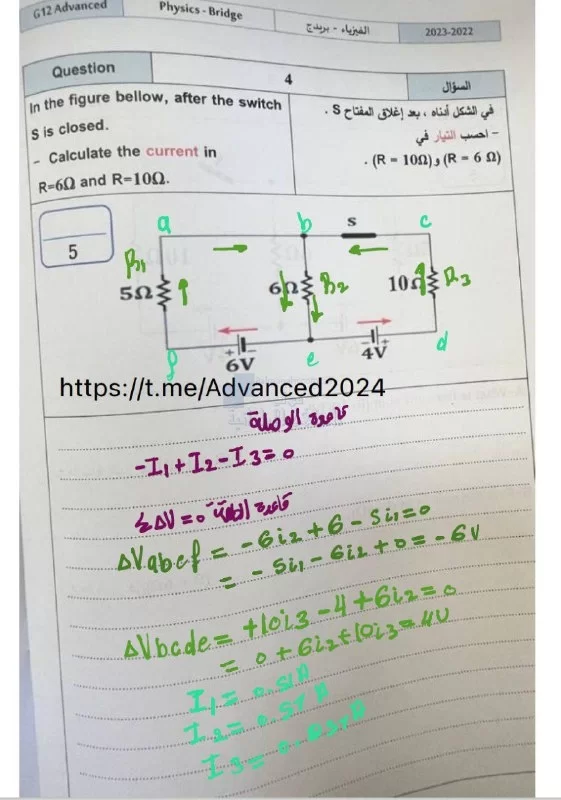 G12 Advanced
Physics - Bridge
الفيزياء - بريدج
2023-2022
Question
4
السؤال
In the figure bellow, after the switch
S is closed.
- Calculate the current in
R=6Ω and R=10Ω.
في الشكل أدناه ، بعد إغلاق المفتاح S .
- احسب التيار في
(R = 6 Ω) و (R = 10Ω) .
5
a
b
s
c
R1
5Ω
6Ω
R2
10Ω
R3
f
+ -
6V
e
- +
4V
d
https://t.me/Advanced2024
قاعدة الوصلة
-I1+I2-I3=0
ΣΔV=0 قاعدة الحلقة
ΔVabef = -6i2+6-5i1=0
= -5i1-6i2+0=-6V
ΔVbcde= +10i3-4+6i2=0
= 0+6i2+10i3=4V
I1=0.51A
I2=0.57A